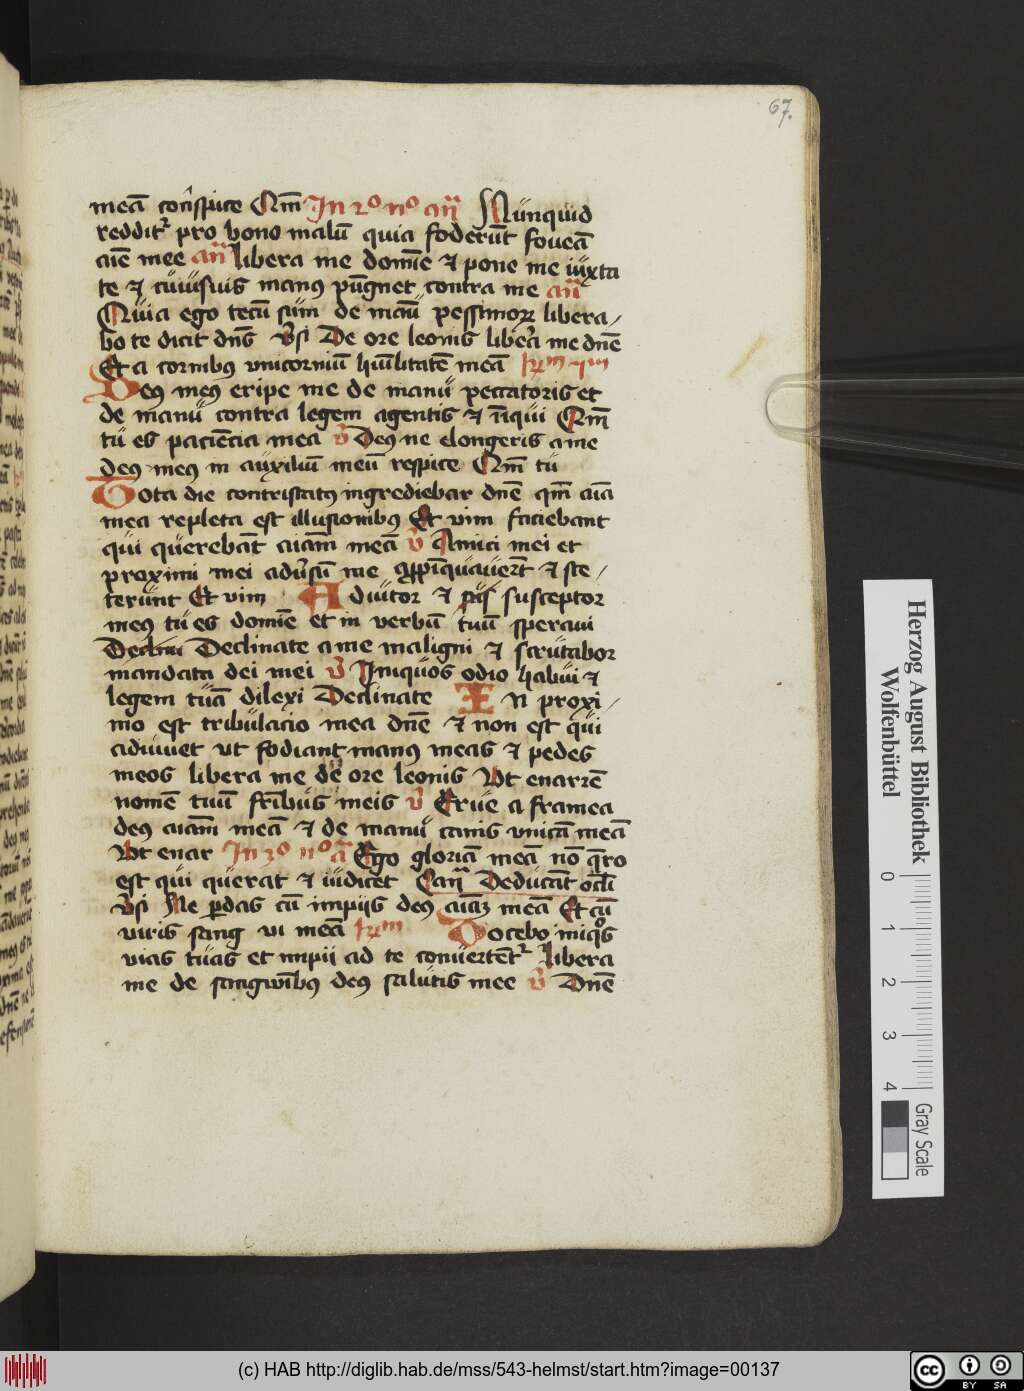 67.
meā con̄spice Qm̄ In 2º nº an̄ Nunquid
reddit᷑ pro bono malū quia foderūt foveā
aīe mee an̄ libera me domīe ⁊ pone me iuxta
te ⁊ cuiusuis manꝰ pūgnet contra me an̄
Quia ego tecū sum de manū pessimoꝝ libera
bo te dicit dn̄s v̄si De ore leonis libera me dn̄e
Et a cornibꝰ unicorniū hūilitatē meā
Deꝰ meꝰ eripe me de manu peccatoris et
de manu contra legem agentis ⁊ īiqui Qm̄
tu es paciēcia mea v̄ Deꝰ ne elongeris a me
deꝰ meꝰ in auxiliū meū respice Qm̄ tu
Tota die contristatꝰ ingrediebar dn̄e qm̄ aīa
mea repleta est illusionibꝰ Et vim faciebant
qui querebāt aīam meā v̄ Amici mei et
proximi mei adūsū me appīquauerūt ⁊ ste
terunt Et vim Adiutor ⁊ susceptor
meꝰ tu es domīe et in verbū tuū speraui
Declinate a me maligni ⁊ scrutabor
mandata dei mei v̄ Iniquos odio habui ⁊
legem tuā dilexi Declinate In proxi
mo est tribulacio mea dn̄e ⁊ non est qui
adiuuet ut fodiant manꝰ meas ⁊ pedes
meos libera me de ore leonis Ut enarrē
nomē tuū fr̄ibus meis v̄ Erue a framea
deꝰ aīam meā ⁊ de manu canis unicā meā
Ut enar In 3º nº ā Ego gloriā meā nō q̄ro
est qui querat ⁊ iudicet Can̄ Deducāt ocl̄i
v̄si Ne ꝑdas cū impijs deꝰ aīaꝫ meā Et cū
viris sang vi meā Docebo iniqͦs
vias tuas et impii ad te conuertēt᷑ libera
me de sangwībꝰ deꝰ salutis mee v̄ Dn̄e
Herzog August Bibliothek
Wolfenbüttel
0 1 2 3 4
Gray Scale
(c) HAB http://diglib.hab.de/mss/543-helmst/start.htm?image=00137
cc BY SA